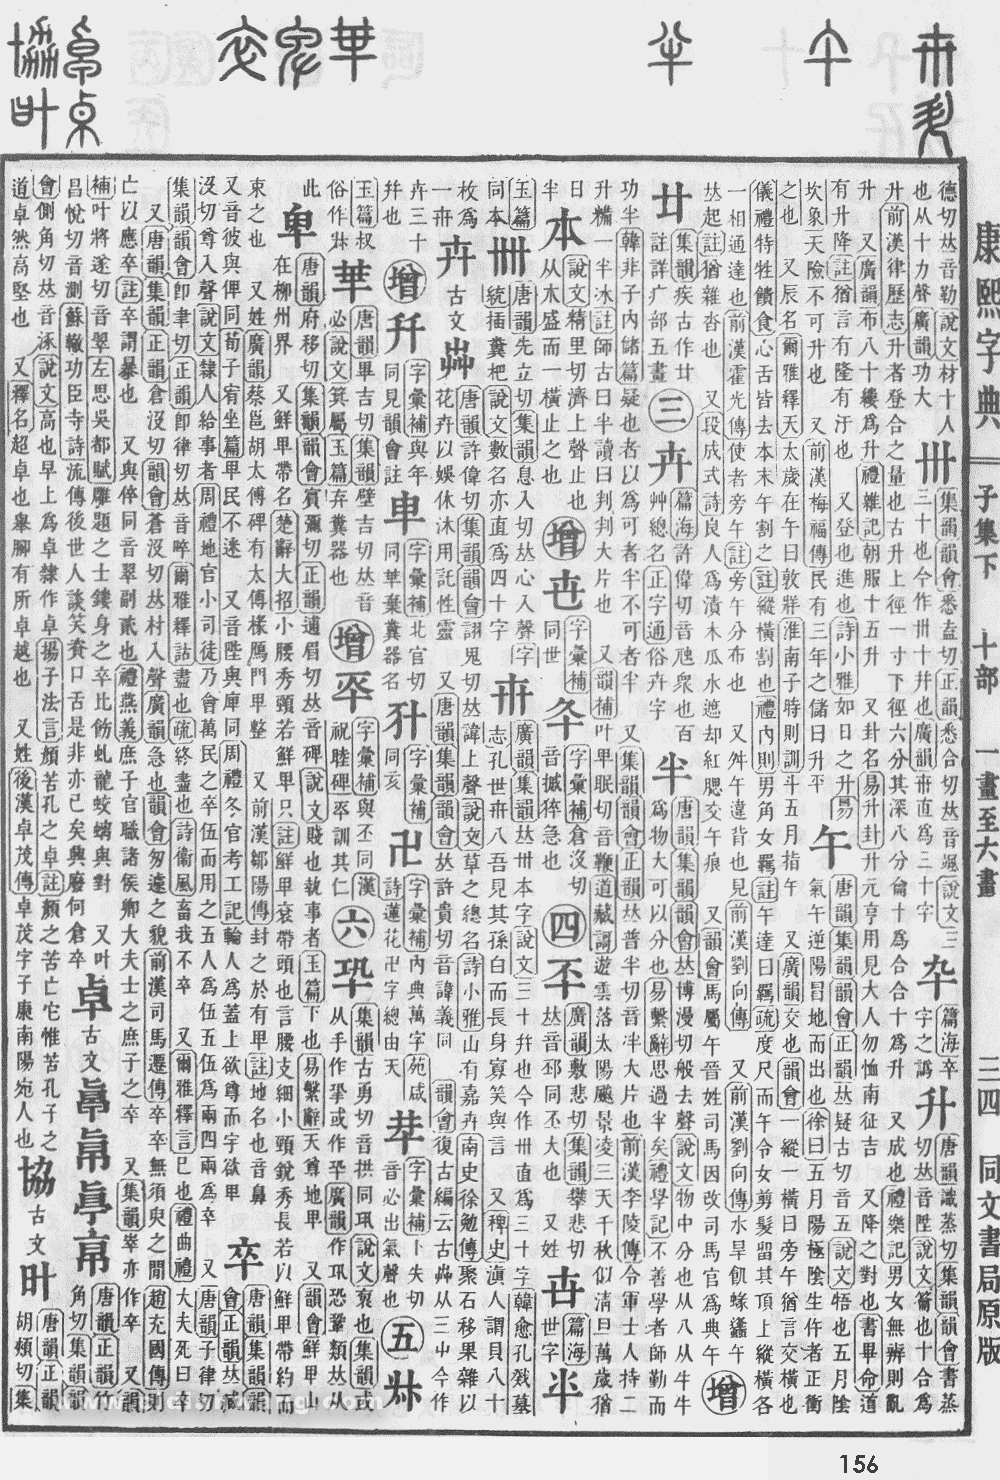 康熙字典 子集下 十部 一畫至六畫 三四 同文書局原版
德切𠀤音勒說文材十人
也从十力聲廣韻功大
卌
集韻韻會悉盍切正韻悉合切𠀤音颯說文三
三十也今作卅十幷也廣韻卌直爲三十字
卆
篇海卒
字之譌
升
唐韻識蒸切集韻韻會書蒸
切𠀤音陞說文籥也十合爲
升前漢律歷志升者登合之量也古升上徑一寸下徑六分其深八分龠十爲合合十爲升 又成也禮樂記男女無辨則亂
升 又廣韻布八十縷爲升禮雜記朝服十五升 又卦名易升卦升元亨用見大人勿恤南征吉 又降之對也書畢命道
有升降註猶言有隆有汙也 又登也進也詩小雅如日之升易
坎象天險不可升也 又前漢梅福傳民有三年之儲曰升平
午
唐韻集韻韻會正韻𠀤疑古切音五說文牾也五月陰
氣午逆陽冒地而出也徐曰五月陽極陰生仵者正衝
之也 又辰名爾雅釋天太歲在午曰敦牂淮南子時則訓斗五月指午 又廣韻交也韻會一縱一橫曰旁午猶言交橫也
儀禮特牲饋食心舌皆去本末午割之註縱橫割也禮內則男角女羈註午達曰羈疏度尺而午令女剪髮留其頂上縱橫各
一相通達也前漢霍光傳使者旁午註旁午分布也 又舛午違背也見前漢劉向傳 又前漢劉向傳水旱飢蝝蠭午
𠀤起註猶雜沓也 又段成式詩良人爲漬木瓜水遮却紅腮交午痕 又韻會馬屬午晉姓司馬因改司馬官爲典午
增
廿
集韻疾古作廿
註詳疒部五畫
三
卉
篇海許偉切音虺衆也百
艸總名正字通俗卉字
半
唐韻集韻韻會𠀤博漫切般去聲說文物中分也从八从牛牛
爲物大可以分也易繫辭思過半矣禮學記不善學者師勤而
功半韓非子內儲篇疑也者以爲可者半不可者半 又集韻韻會正韻𠀤普半切音泮大片也前漢李陵傳令軍士人持二
升糒一半冰註師古曰半讀曰判判大片也 又韻補叶畢眠切音鞭道藏謌遊雲落太陽飈景凌三天千秋似淸旦萬歲猶
日半
本
說文精里切濟上聲止也
从木盛而一橫止之也
增
卋
字彙補
同世
卆
字彙補倉沒切
音捽猝急也
四
丕
廣韻敷悲切集韻攀悲切
𠀤音邳同丕大也 又姓
卋
篇海
世字
半
玉篇
同本
卌
唐韻先立切集韻息入切𠀤心入聲字
統插糞杷說文數名亦直爲四十字
卅
廣韻集韻𠀤卅本字說文三十幷也今作卅直爲三十字韓愈孔戣墓
志孔世卅八吾見其孫白而長身寡笑與言 又稗史滇人謂貝八十
枚爲
一卌
卉
古文
芔
唐韻許偉切集韻韻會詡鬼切𠀤諱上聲說文草之總名詩小雅山有嘉卉南史徐勉傳聚石移果雜以
花卉以娛休沐用託性靈 又唐韻集韻韻會𠀤許貴切音諱義同 韻會復古編云古芔从三屮今作
卉三十
幷也
增
幵
字彙補與年
同見韻會註
車
字彙補北官切
同華棄糞器名
字彙補
同亥
卍
字彙補內典萬字苑咸
詩蓮花卍字總由天
字彙補卜失切
音必出氣聲也
五
玉篇叔
俗作
華
唐韻畢吉切集韻壁吉切𠀤音
必說文箕屬玉篇弃糞器也
增
卒
字彙補與丕同漢
祝睦碑丕訓其仁
六
巩
集韻古勇切音拱同巩說文袌也集韻或
从手作㧬或作巩廣韻作巩恐鞏類𠀤从
此
卑
唐韻府移切集韻韻會賓彌切正韻逋眉切𠀤音碑說文賤也執事者玉篇下也易繫辭天尊地卑 又韻會鮮卑山
在柳州界 又鮮卑帶名楚辭大招小腰秀頸若鮮卑只註鮮卑袞帶頭也言腰支細小頸銳秀長若以鮮卑帶約而
束之也 又姓廣韻蔡邕胡太傅碑有太傅椽鴈門卑整 又前漢鄒陽傳封之於有卑註地名也音鼻
又音彼與俾同荀子宥坐篇卑民不迷 又音陛與庳同周禮冬官考工記輪人爲蓋上欲尊而宇欲卑
卒
唐韻集韻韻
會正韻𠀤臧
沒切尊入聲說文隸人給事者周禮地官小司徒乃會萬民之卒伍而用之五人爲伍五伍爲兩四兩爲卒 又唐韻子律切
集韻韻會卽聿切正韻卽律切𠀤音啐爾雅釋詁盡也疏終盡也詩衞風畜我不卒 又爾雅釋言已也禮曲禮大夫死曰卒
又唐韻集韻正韻倉沒切韻會蒼沒切𠀤村入聲廣韻急也韻會匆遽之貌前漢司馬遷傳卒卒無須臾之閒趙充國傳則
亡以應卒註卒謂暴也 又與倅同音翠副貳也禮燕義庶子官職諸侯卿大夫士之庶子之卒 又集韻崒亦作卒 又韻
補叶將遂切音翠左思吳都賦雕題之士鏤身之卒比飾虬龍蛟螭與對 又叶
昌悅切音測蘇轍功臣寺詩流傳後世人談笑資口舌是非亦已矣興廢何倉卒
卓
古文
唐韻正韻竹
角切集韻韻
會側角切𠀤音涿說文高也早上爲卓隸作卓揚子法言顏苦孔之卓註顏之苦亡它惟苦孔子之
道卓然高堅也 又釋名超卓也舉腳有所卓越也 又姓後漢卓茂傳卓茂字子康南陽宛人也
協
古文
叶
唐韻正韻
胡頰切集
156